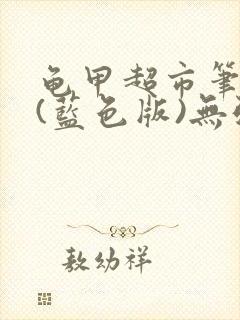 龟甲超市筆
(藍色版)無
敖幼祥